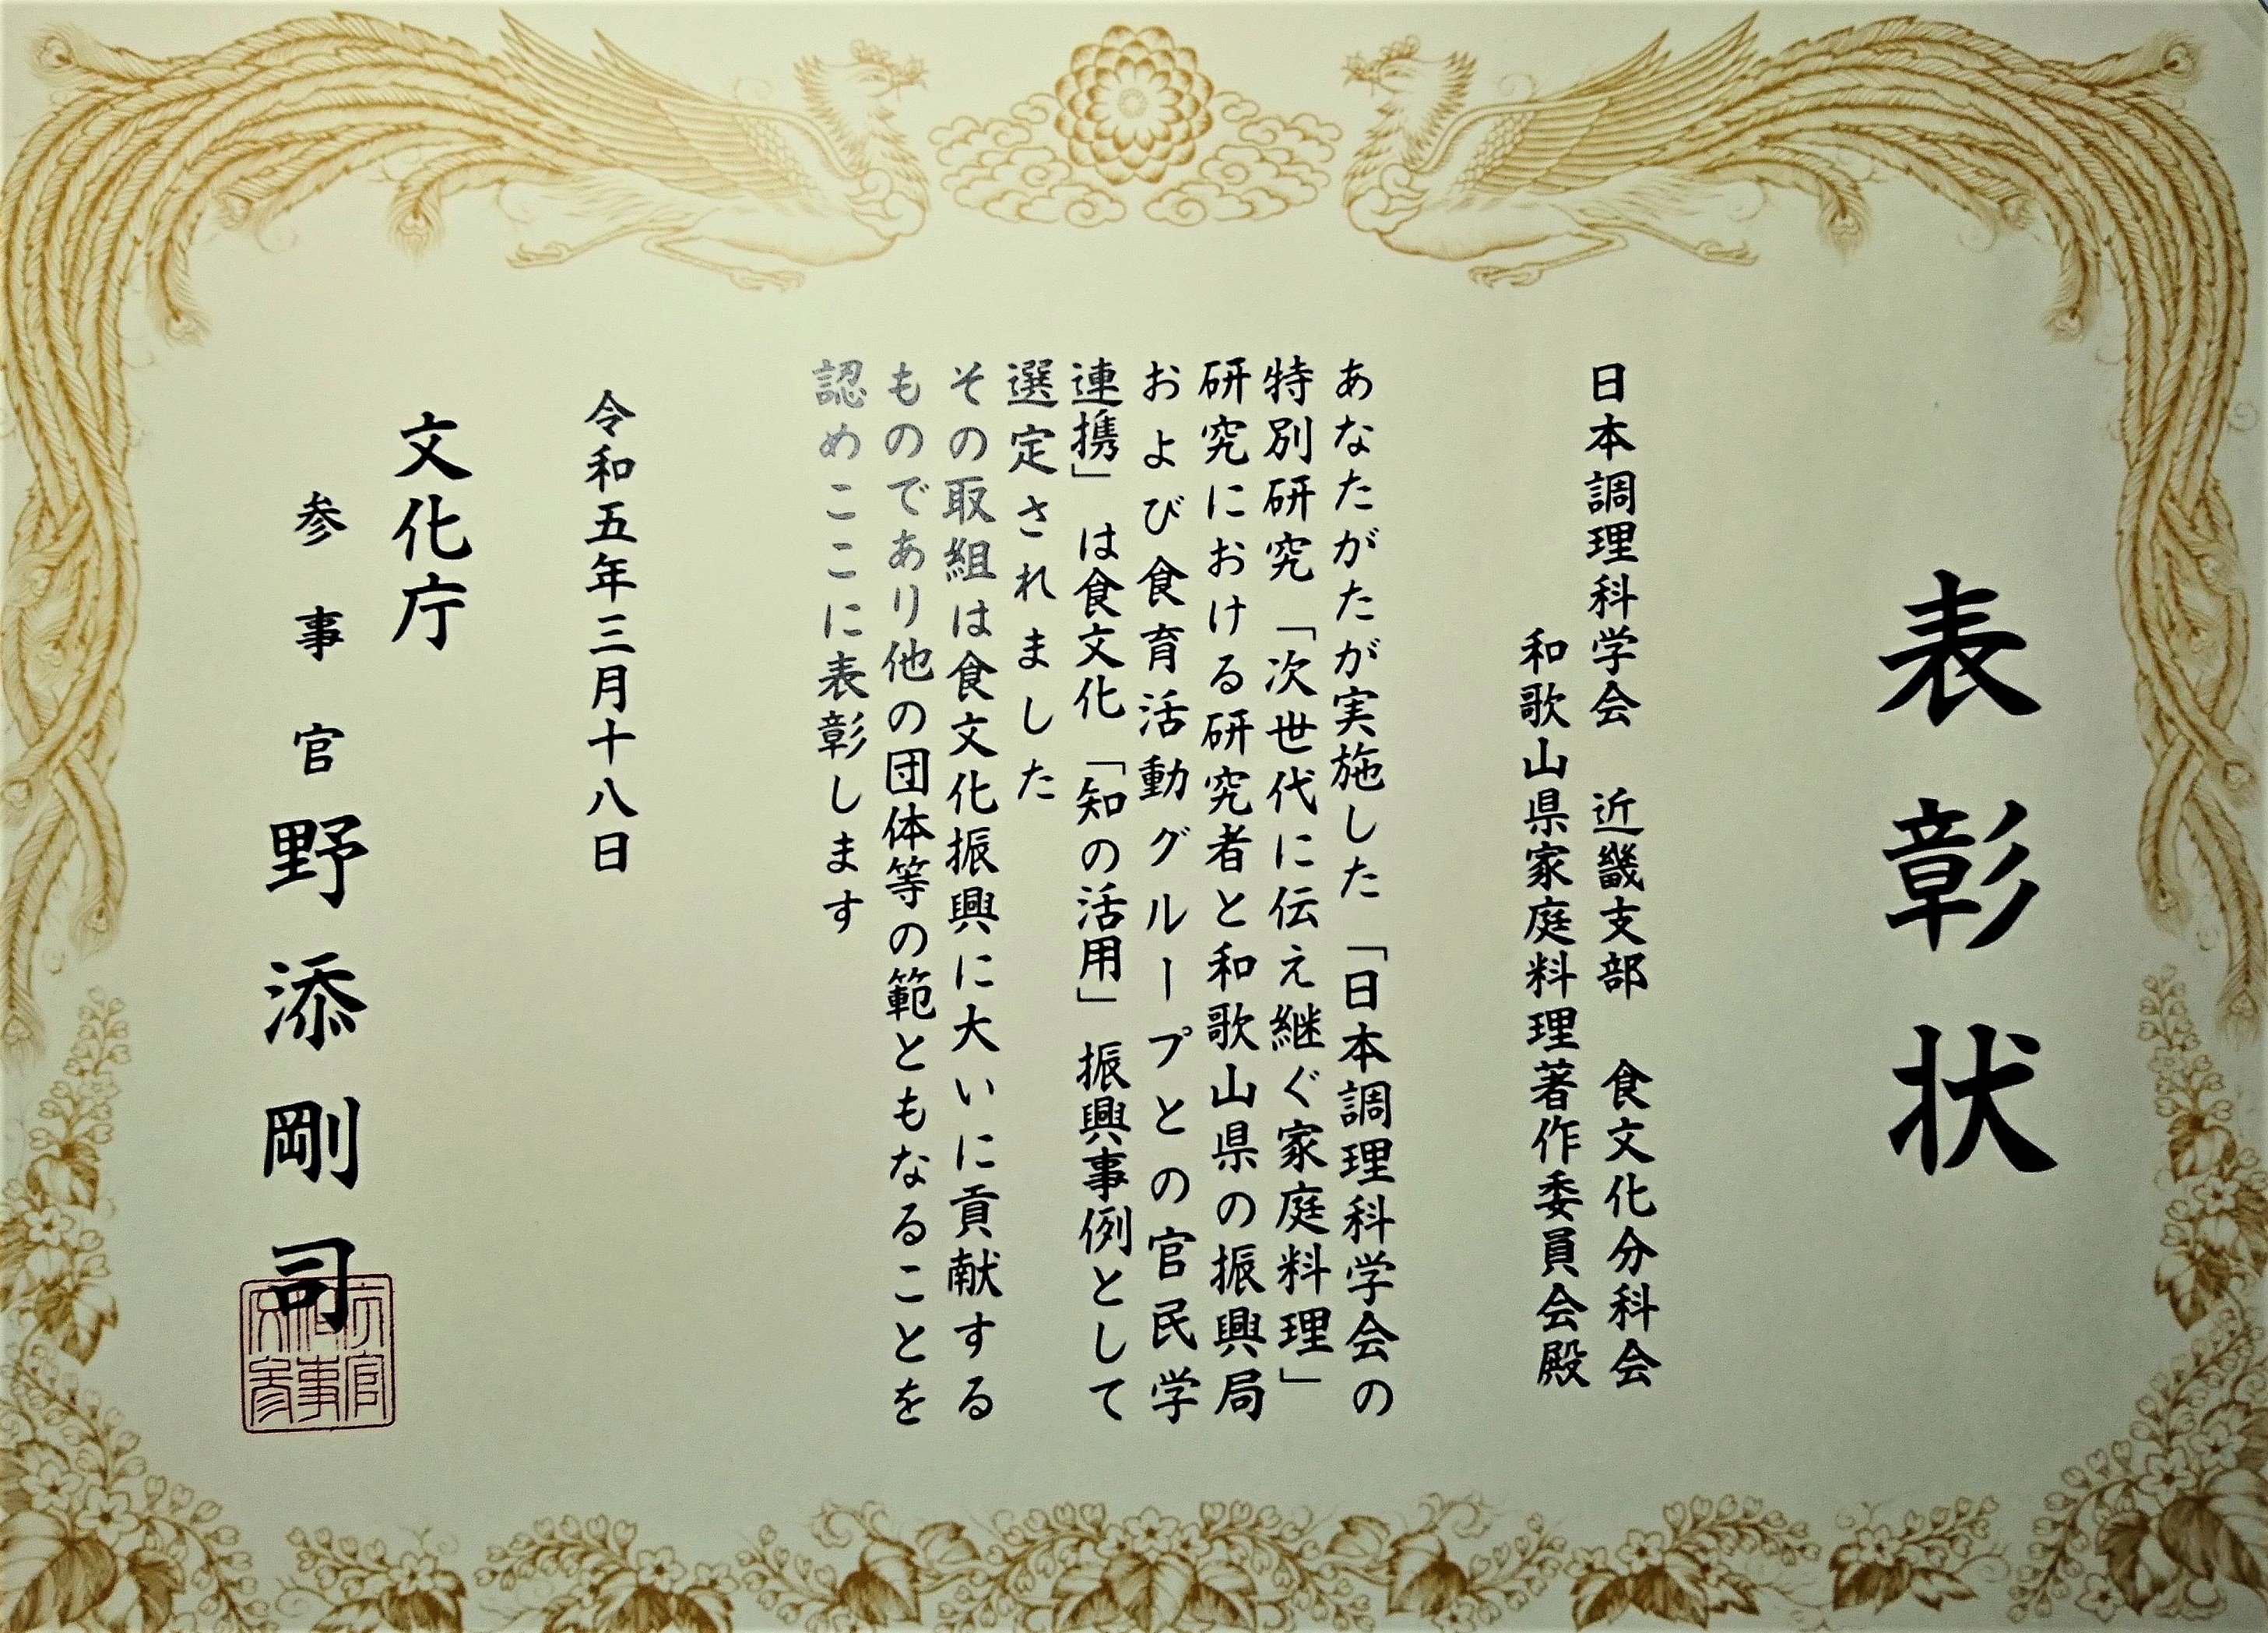 表彰状
日本調理科学会　近畿支部　食文化分科会
和歌山県家庭料理著作委員会殿
あなたがたが実施した「日本調理科学会の
特別研究「次世代に伝え継ぐ家庭料理」
研究における研究者と和歌山県の振興局
および食育活動グループとの官民学
連携」は食文化「知の活用」振興事例として
選定されました
その取組は食文化振興に大いに貢献する
ものであり他の団体等の範ともなることを
認めここに表彰します
令和五年三月十八日
文化庁
参事官　野添剛司
文化庁
参事官